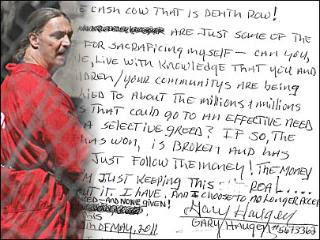 E CASH COW THAT IS DEATH ROW!
ARE JUST SOME OF THE
FOR SACRAFICING MYSELF — CAN YOU,
E, LIVE WITH KNOWLEDGE THAT YOU AND
LDREN/YOUR COMMUNITYS ARE BEING
LIED TO ABOUT THE MILLIONS & MILLIONS
S THAT COULD GO TO AN EFFECTIVE NEED
A SELECTIVE GREED? IF SO, THE
HAS WON, IS BROKEN AND HAS
JUST FOLLOW THE MONEY! THE MONEY
M JUST KEEPING THIS ... REAL....
UT IT. I HAVE, AND I CHOOSE TO NO LONGER
— AND NONE GIVEN!
Gary Haugen
THIS
GARY HAUGEN
OF MAY, 2011